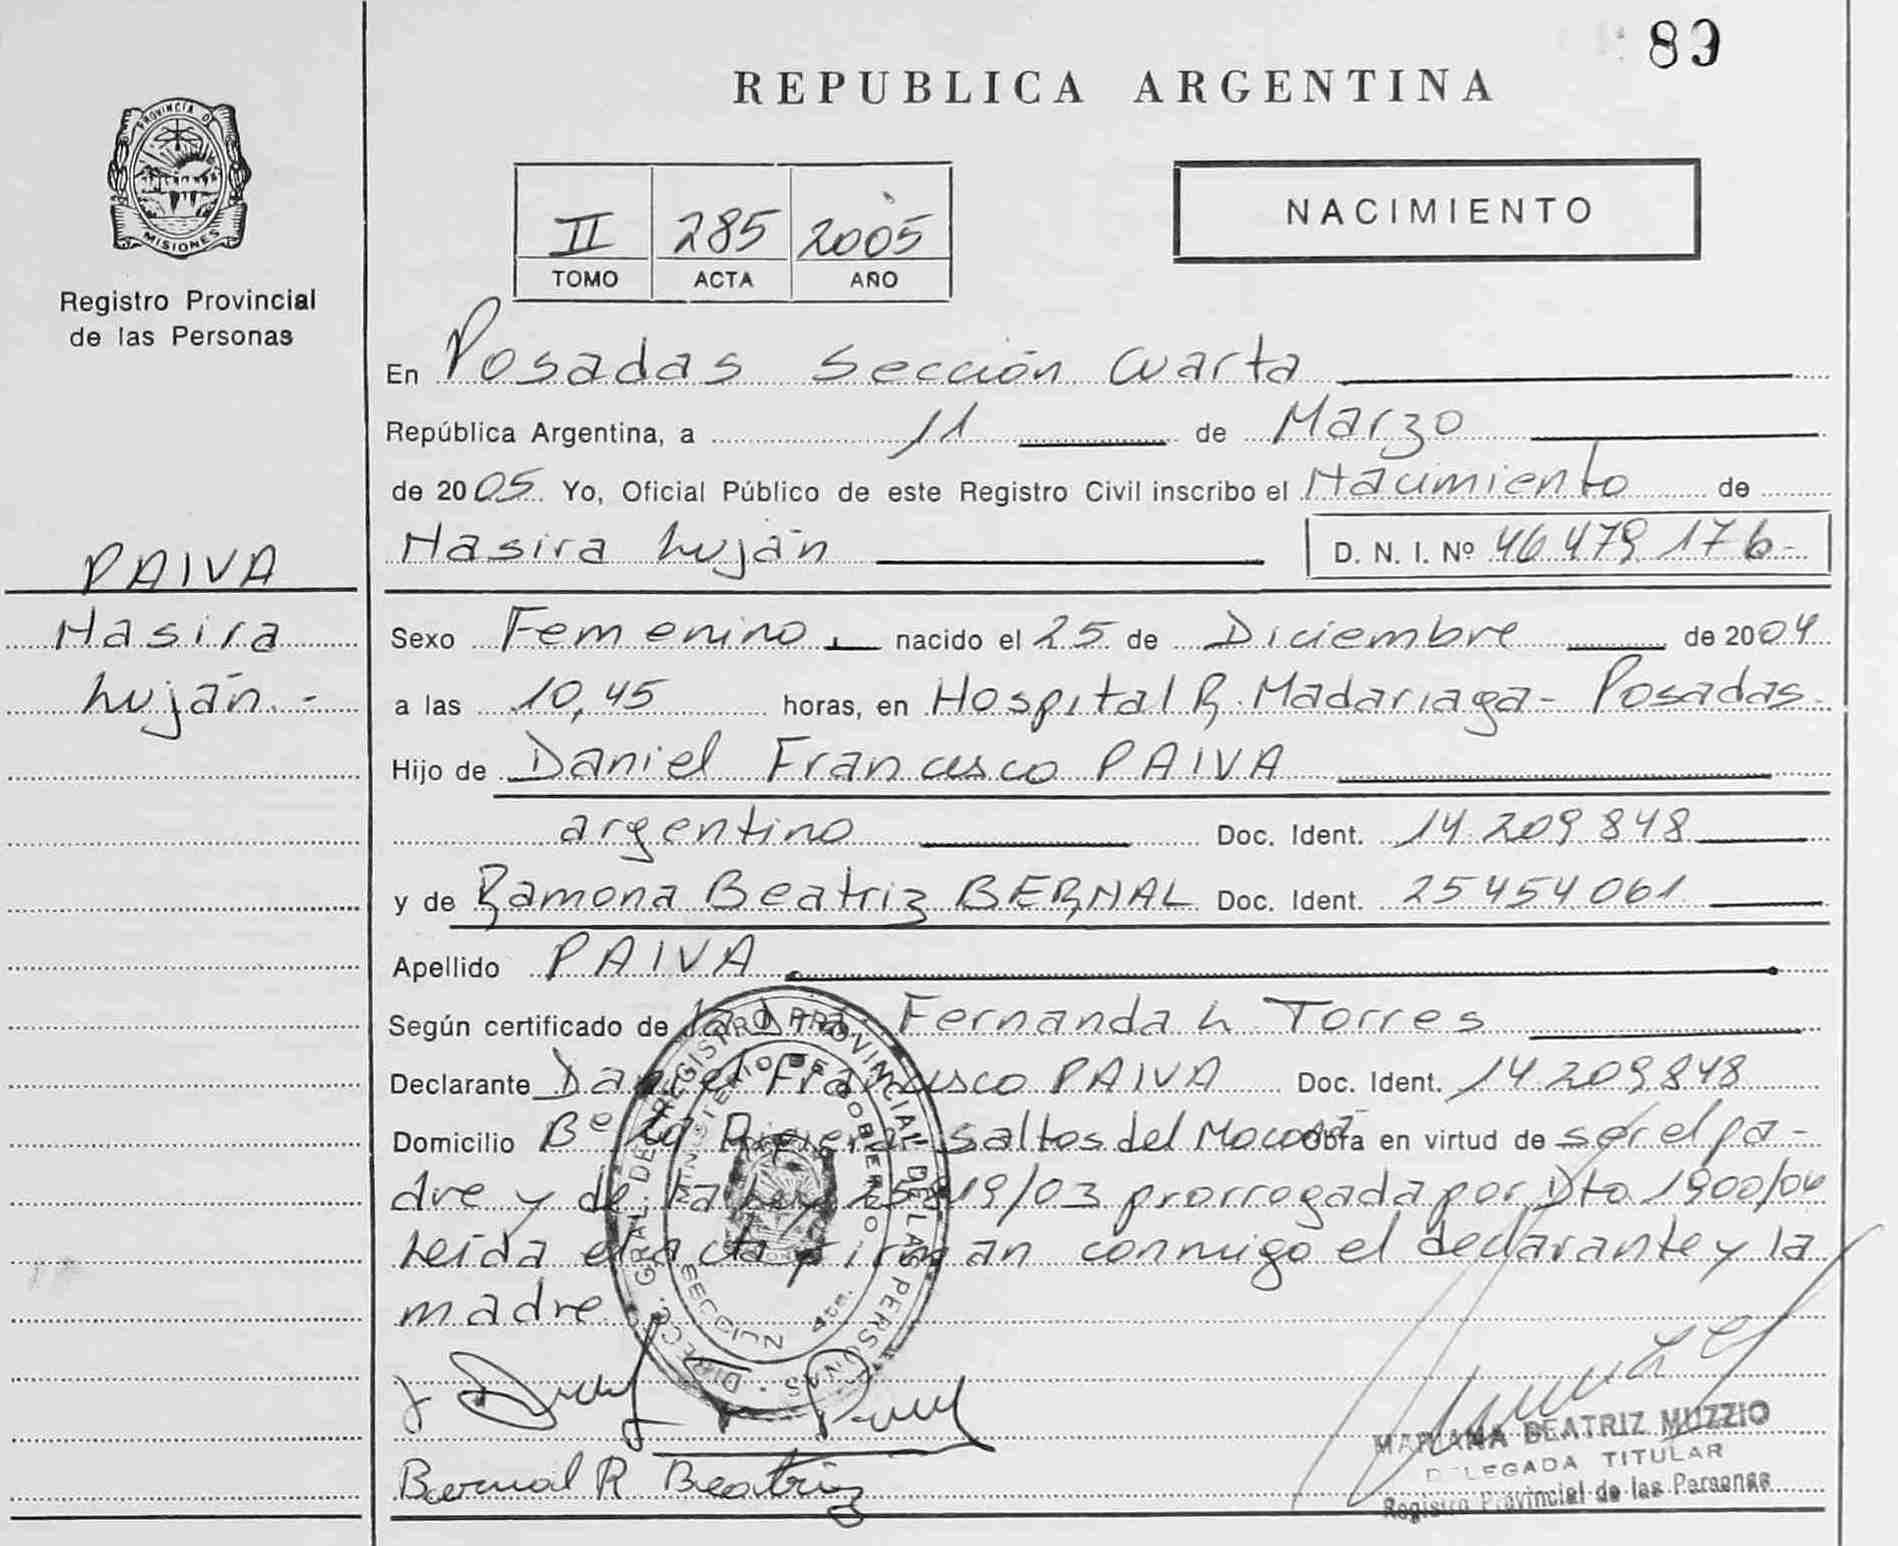 89
REPUBLICA ARGENTINA
PROVINCIA DE
MISIONES
Registro Provincial
de las Personas
II 285 2005
TOMO ACTA AÑO
NACIMIENTO
En Posadas Sección Cuarta
República Argentina, a 11 de Marzo
de 2005 Yo, Oficial Público de este Registro Civil inscribo el Nacimiento de
Nasira Luján D. N. I. Nº 46.479.176-
PAIVA
Nasira
Luján.-
Sexo Femenino nacido el 25 de Diciembre de 2004
a las 10,45 horas, en Hospital R. Madariaga- Posadas.
Hijo de Daniel Francisco PAIVA
argentino Doc. Ident. 14.209.848
y de Ramona Beatriz BERNAL Doc. Ident. 25.454.061
Apellido PAIVA
Según certificado de la Dra. Fernanda L. Torres
Declarante Daniel Francisco PAIVA Doc. Ident. 14.209.848
Domicilio Bº La Saltos del Obra en virtud de ser el pa-
dre y de la Ley 25819/03 prorrogada por Dto. 1900/04
Leída el acta firman conmigo el declarante y la
madre.
DIRECC. GRAL. DE REGISTRO PROVINCIAL DE LAS PERSONAS
MINISTERIO DE GOBIERNO
SECCION 4ta.
Bernal R Beatriz
MARIANA BEATRIZ MUZZIO
DELEGADA TITULAR
Registro Provincial de las Personas